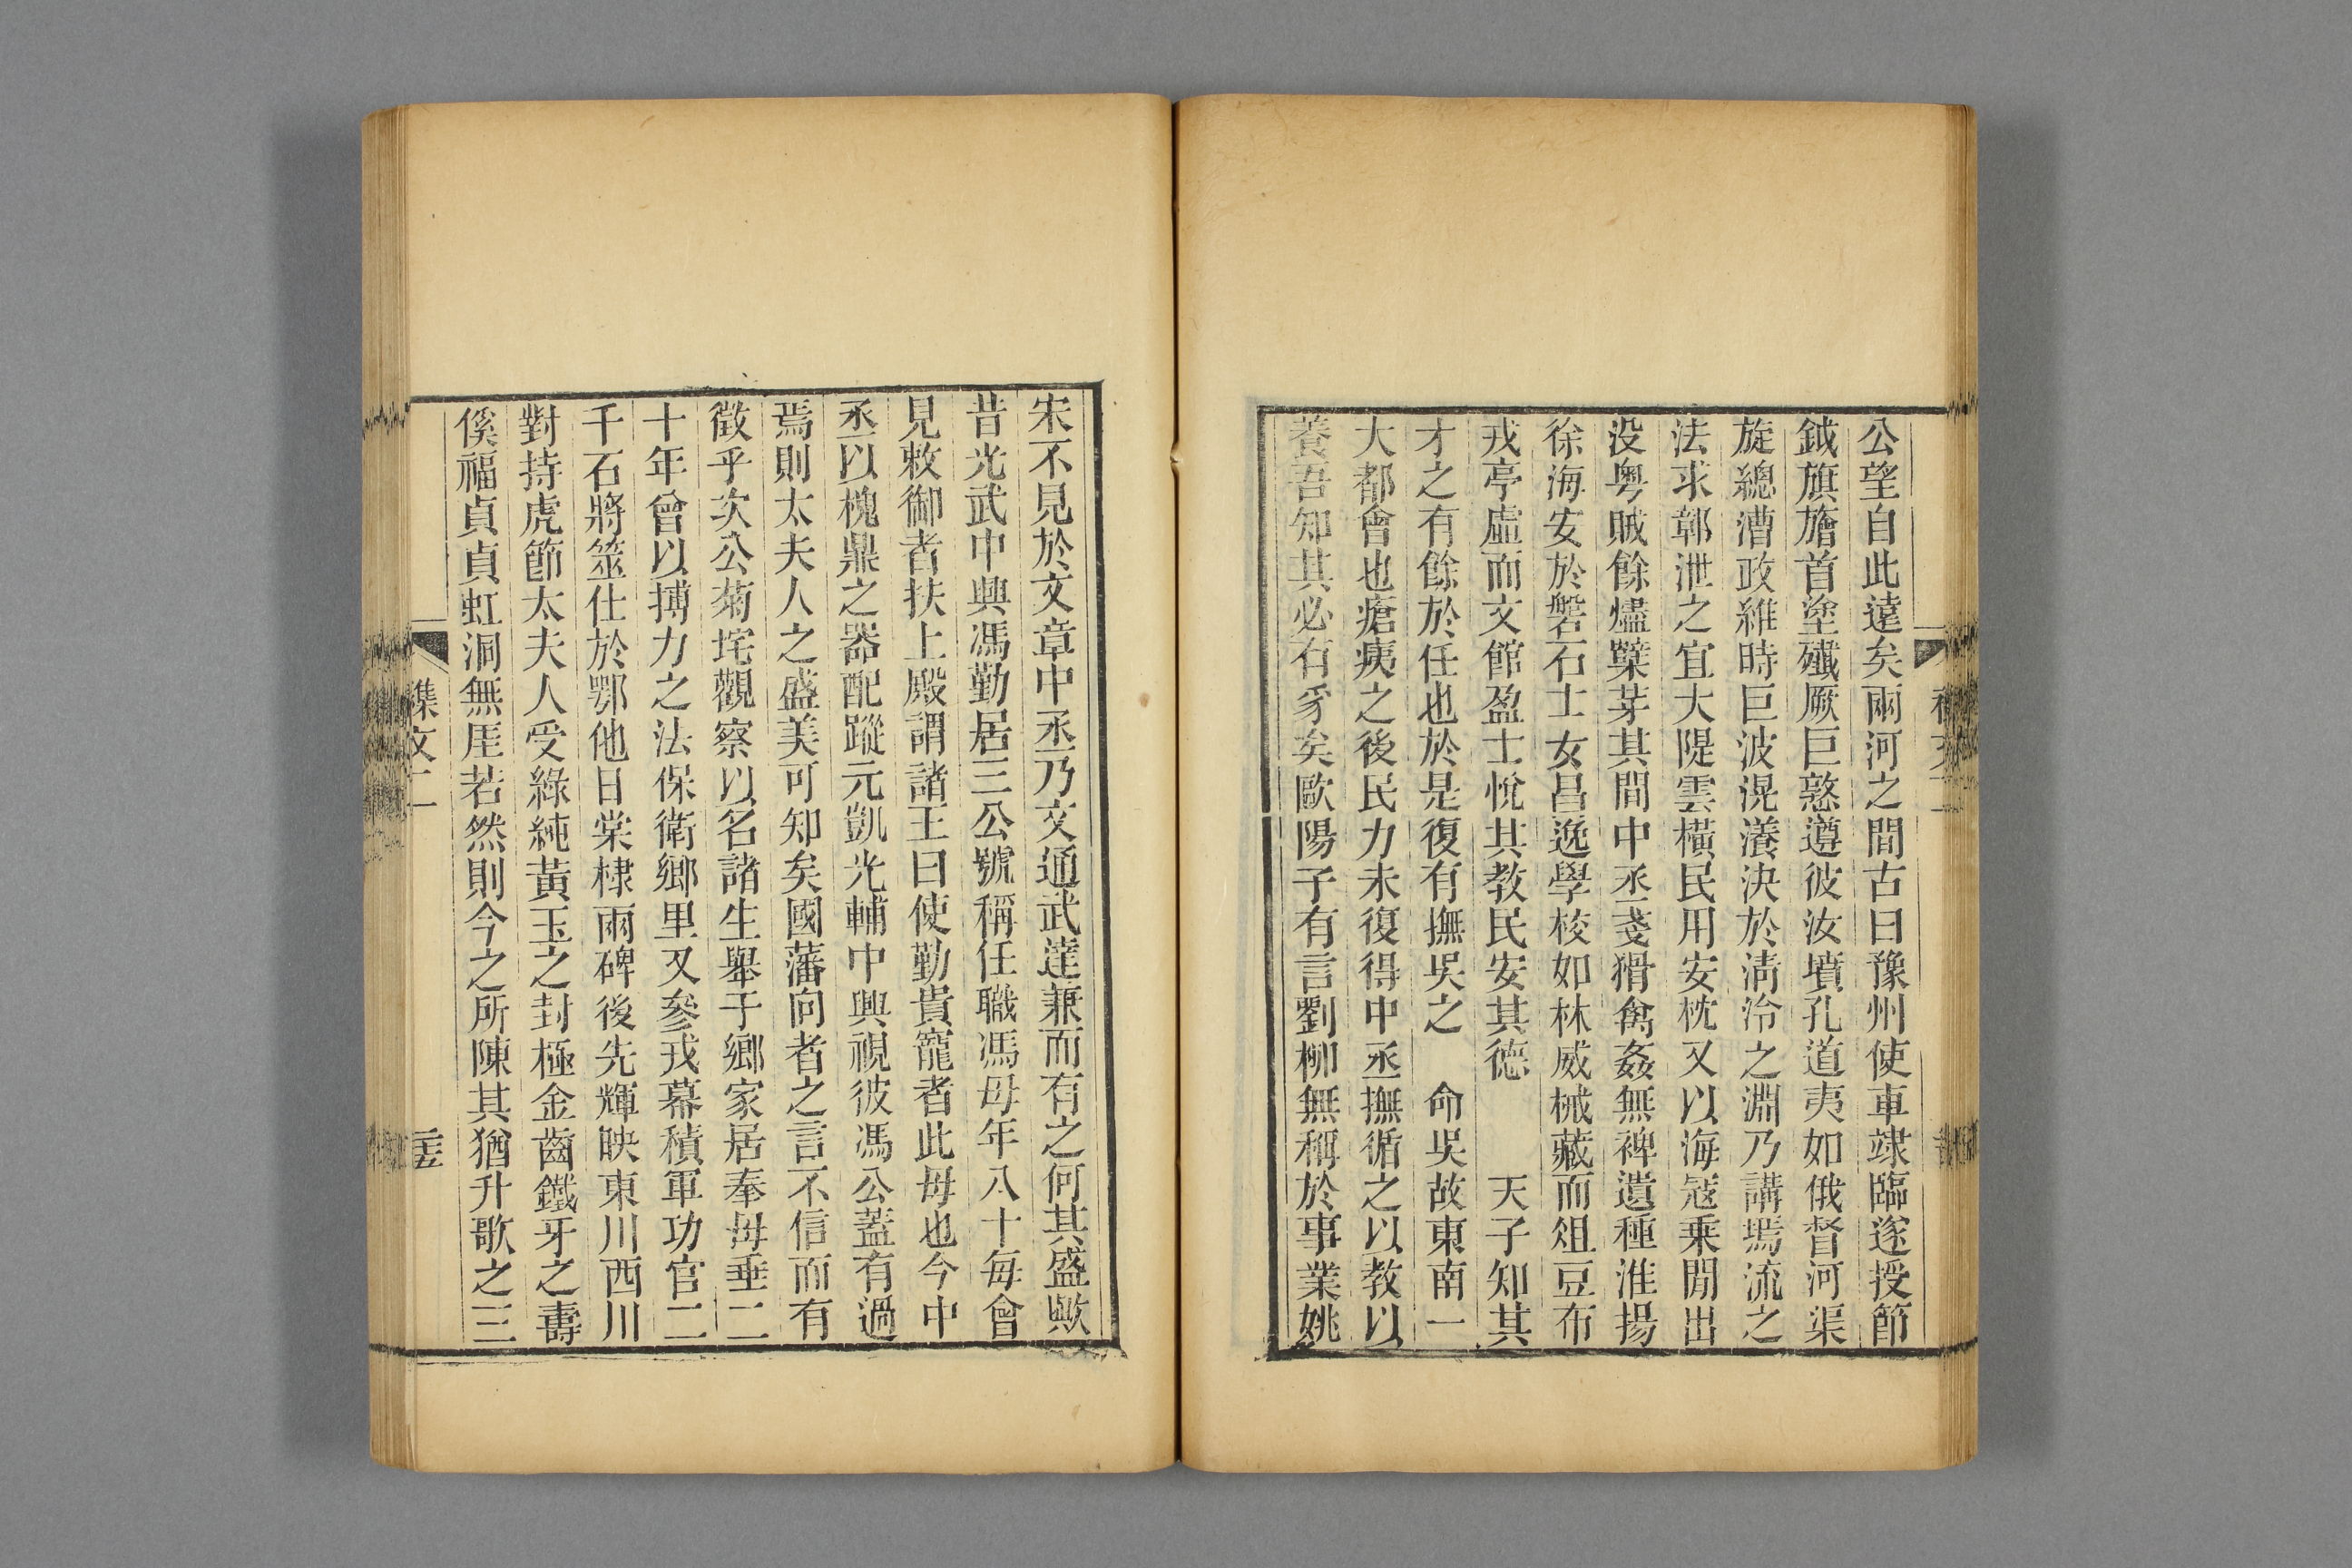 公望自此遠矣兩河之間古曰豫州使車竦臨遂授節
鉞旗旝首塗殲厥巨憝遵彼汝墳孔道夷如俄督河渠
旋總漕政維時巨波滉瀁決於淸泠之淵乃講塲流之
法求鄣泄之宜大隄雲橫民用安枕又以海寇乘閒出
没粤賊餘燼櫱芽其間中丞戔猾禽姦無裨遺種淮揚
徐海安於磐石士女昌逸學校如林威械藏而俎豆布
戎亭虛而文館盈士悅其教民安其德 天子知其
才之有餘於任也於是復有撫吳之 命吳故東南一
大都會也瘡痍之後民力未復得中丞撫循之以教以
養吾知其必有豸矣歐陽子有言劉柳無稱於事業姚
宋不見於文章中丞乃文通武達兼而有之何其盛歟
昔光武中興馮勤居三公號稱任職馮母年八十每會
見敕御者扶上殿謂諸王曰使勤貴寵者此母也今中
丞以槐鼎之器配蹤元凱光輔中興視彼馮公蓋有過
焉則太夫人之盛美可知矣國藩向者之言不信而有
徵乎次公菊垞觀察以名諸生舉于鄉家居奉母垂二
十年曾以搏力之法保衛鄉里又參戎幕積軍功官二
千石將筮仕於鄂他日棠棣兩碑後先輝映東川西川
對持虎節太夫人受綠純黃玉之封極金齒鐵牙之壽
傒福貞貞虹洞無厓若然則今之所陳其猶升歌之三
襍文二